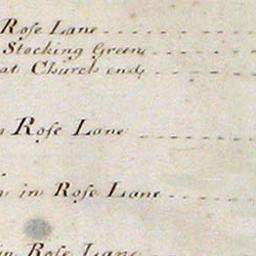 Roſe Lane
Stocking Green
at Church end
Roſe Lane
in Roſe Lane
in Roſe Lane